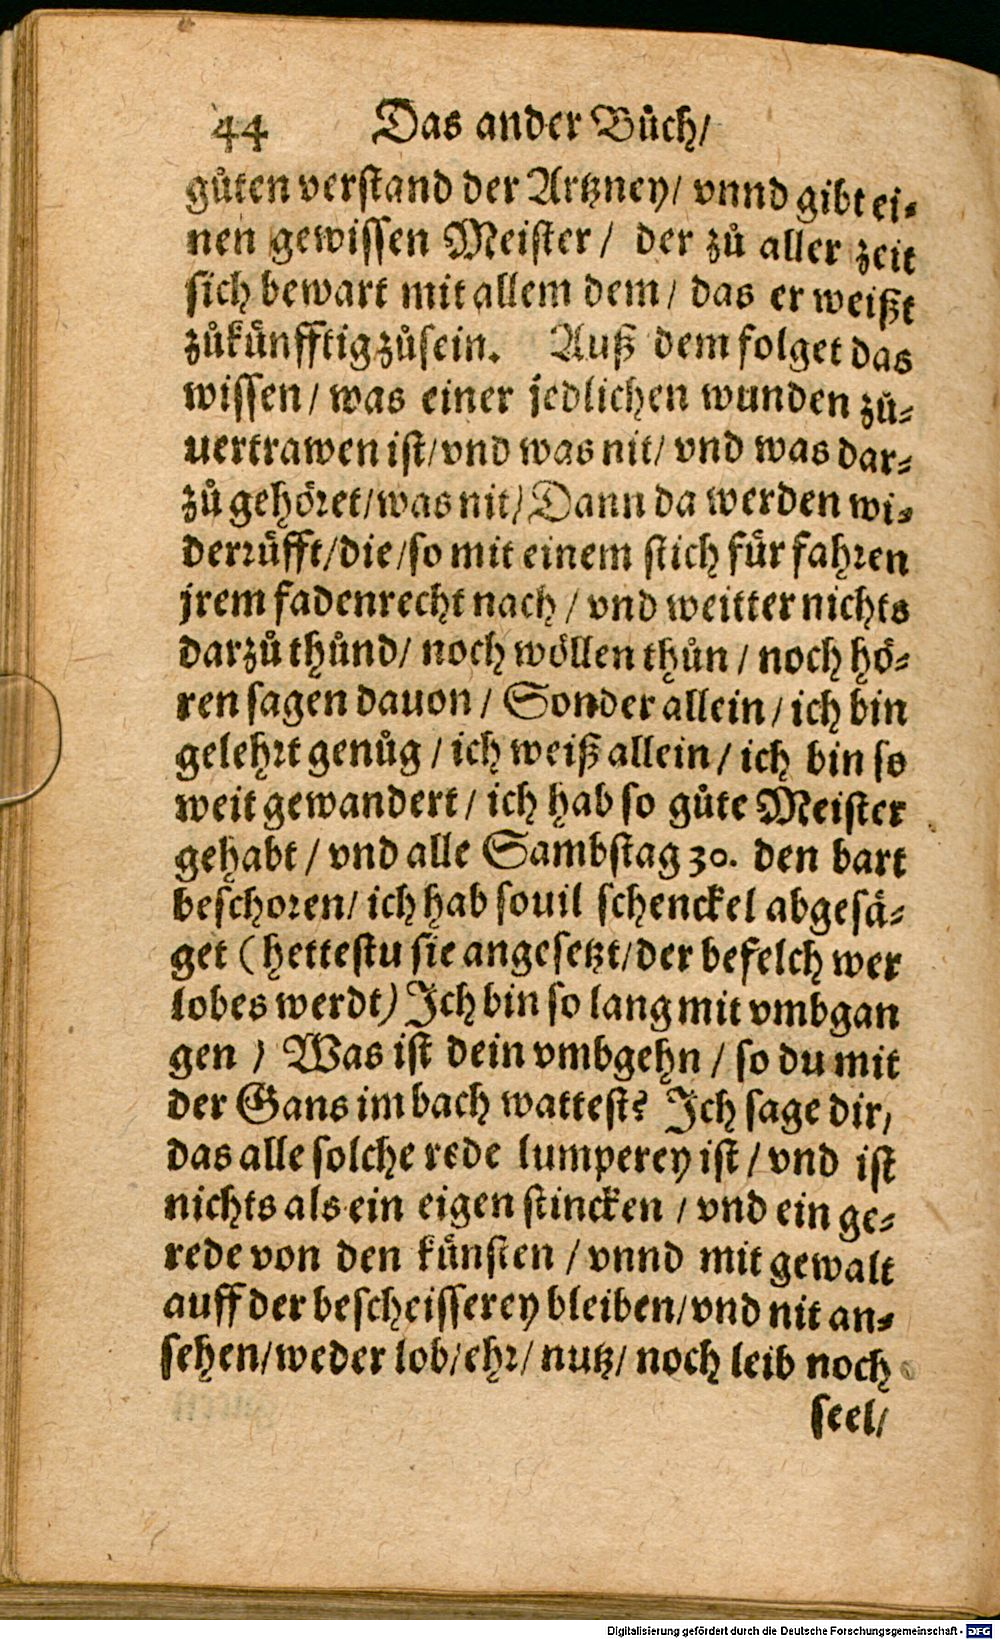 44 Das ander Bůch/
gůten verstand der Artzney/ vnnd gibt ei-
nen gewissen Meister / der zů aller zeit
sich bewart mit allem dem / das er weißt
zůkünfftig zůsein. Auß dem folget das
wissen / was einer jedlichen wunden zů-
uertrawen ist/ vnd was nit/ vnd was dar-
zů gehöret/ was nit/ Dann da werden wi-
derrüfft/ die / so mit einem stich für fahren
jrem fadenrecht nach / vnd weitter nichts
darzů thůnd/ noch wöllen thůn / noch hö-
ren sagen dauon / Sonder allein / ich bin
gelehrt genůg / ich weiß allein / ich bin so
weit gewandert / ich hab so gůte Meister
gehabt / vnd alle Sambstag 30. den bart
beschoren/ ich hab souil schenckel abgesä-
get ( hettestu sie angesetzt/ der befelch wer
lobes werdt) Ich bin so lang mit vmbgan
gen / Was ist dein vmbgehn / so du mit
der Gans im bach wattest? Ich sage dir,
das alle solche rede lumperey ist / vnd ist
nichts als ein eigen stincken / vnd ein ge-
rede von den künsten / vnnd mit gewalt
auff der bescheisserey bleiben/ vnd nit an-
sehen/ weder lob/ ehr/ nutz/ noch leib noch
seel/
Digitalisierung gefördert durch die Deutsche Forschungsgemeinschaft - DFG